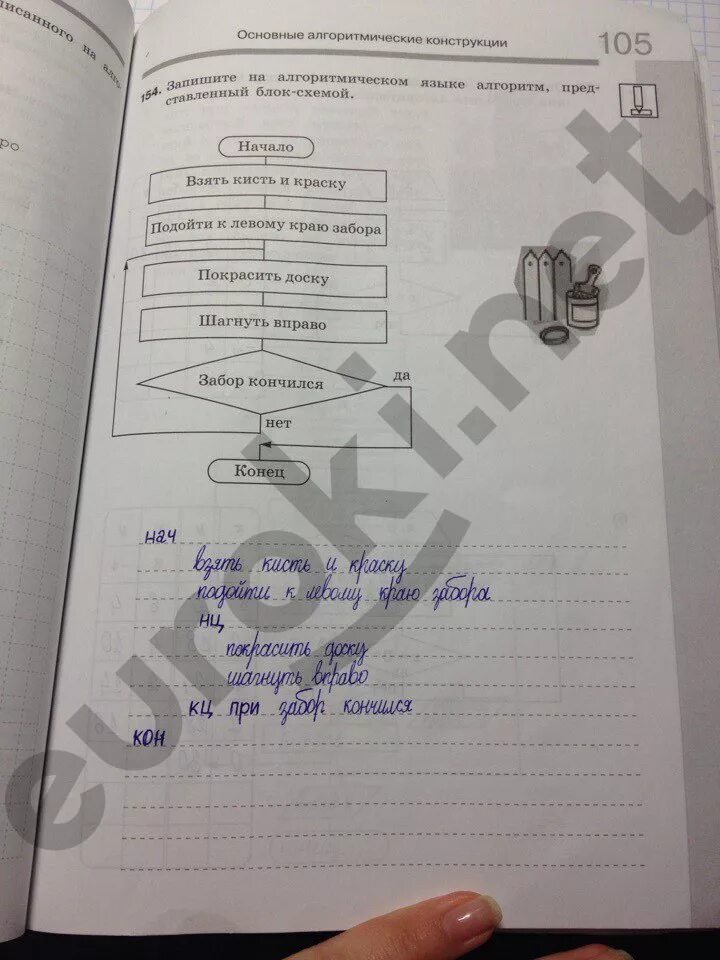 исанного на алго-
ро
Основные алгоритмические конструкции 105
154. Запишите на алгоритмическом языке алгоритм, пред-
ставленный блок-схемой.
Начало
Взять кисть и краску
Подойти к левому краю забора
Покрасить доску
Шагнуть вправо
Забор кончился
да
нет
Конец
нач
взять кисть и краску
подойти к левому краю забора
нц
покрасить доску
шагнуть вправо
кц при забор кончился
кон
euroki.net